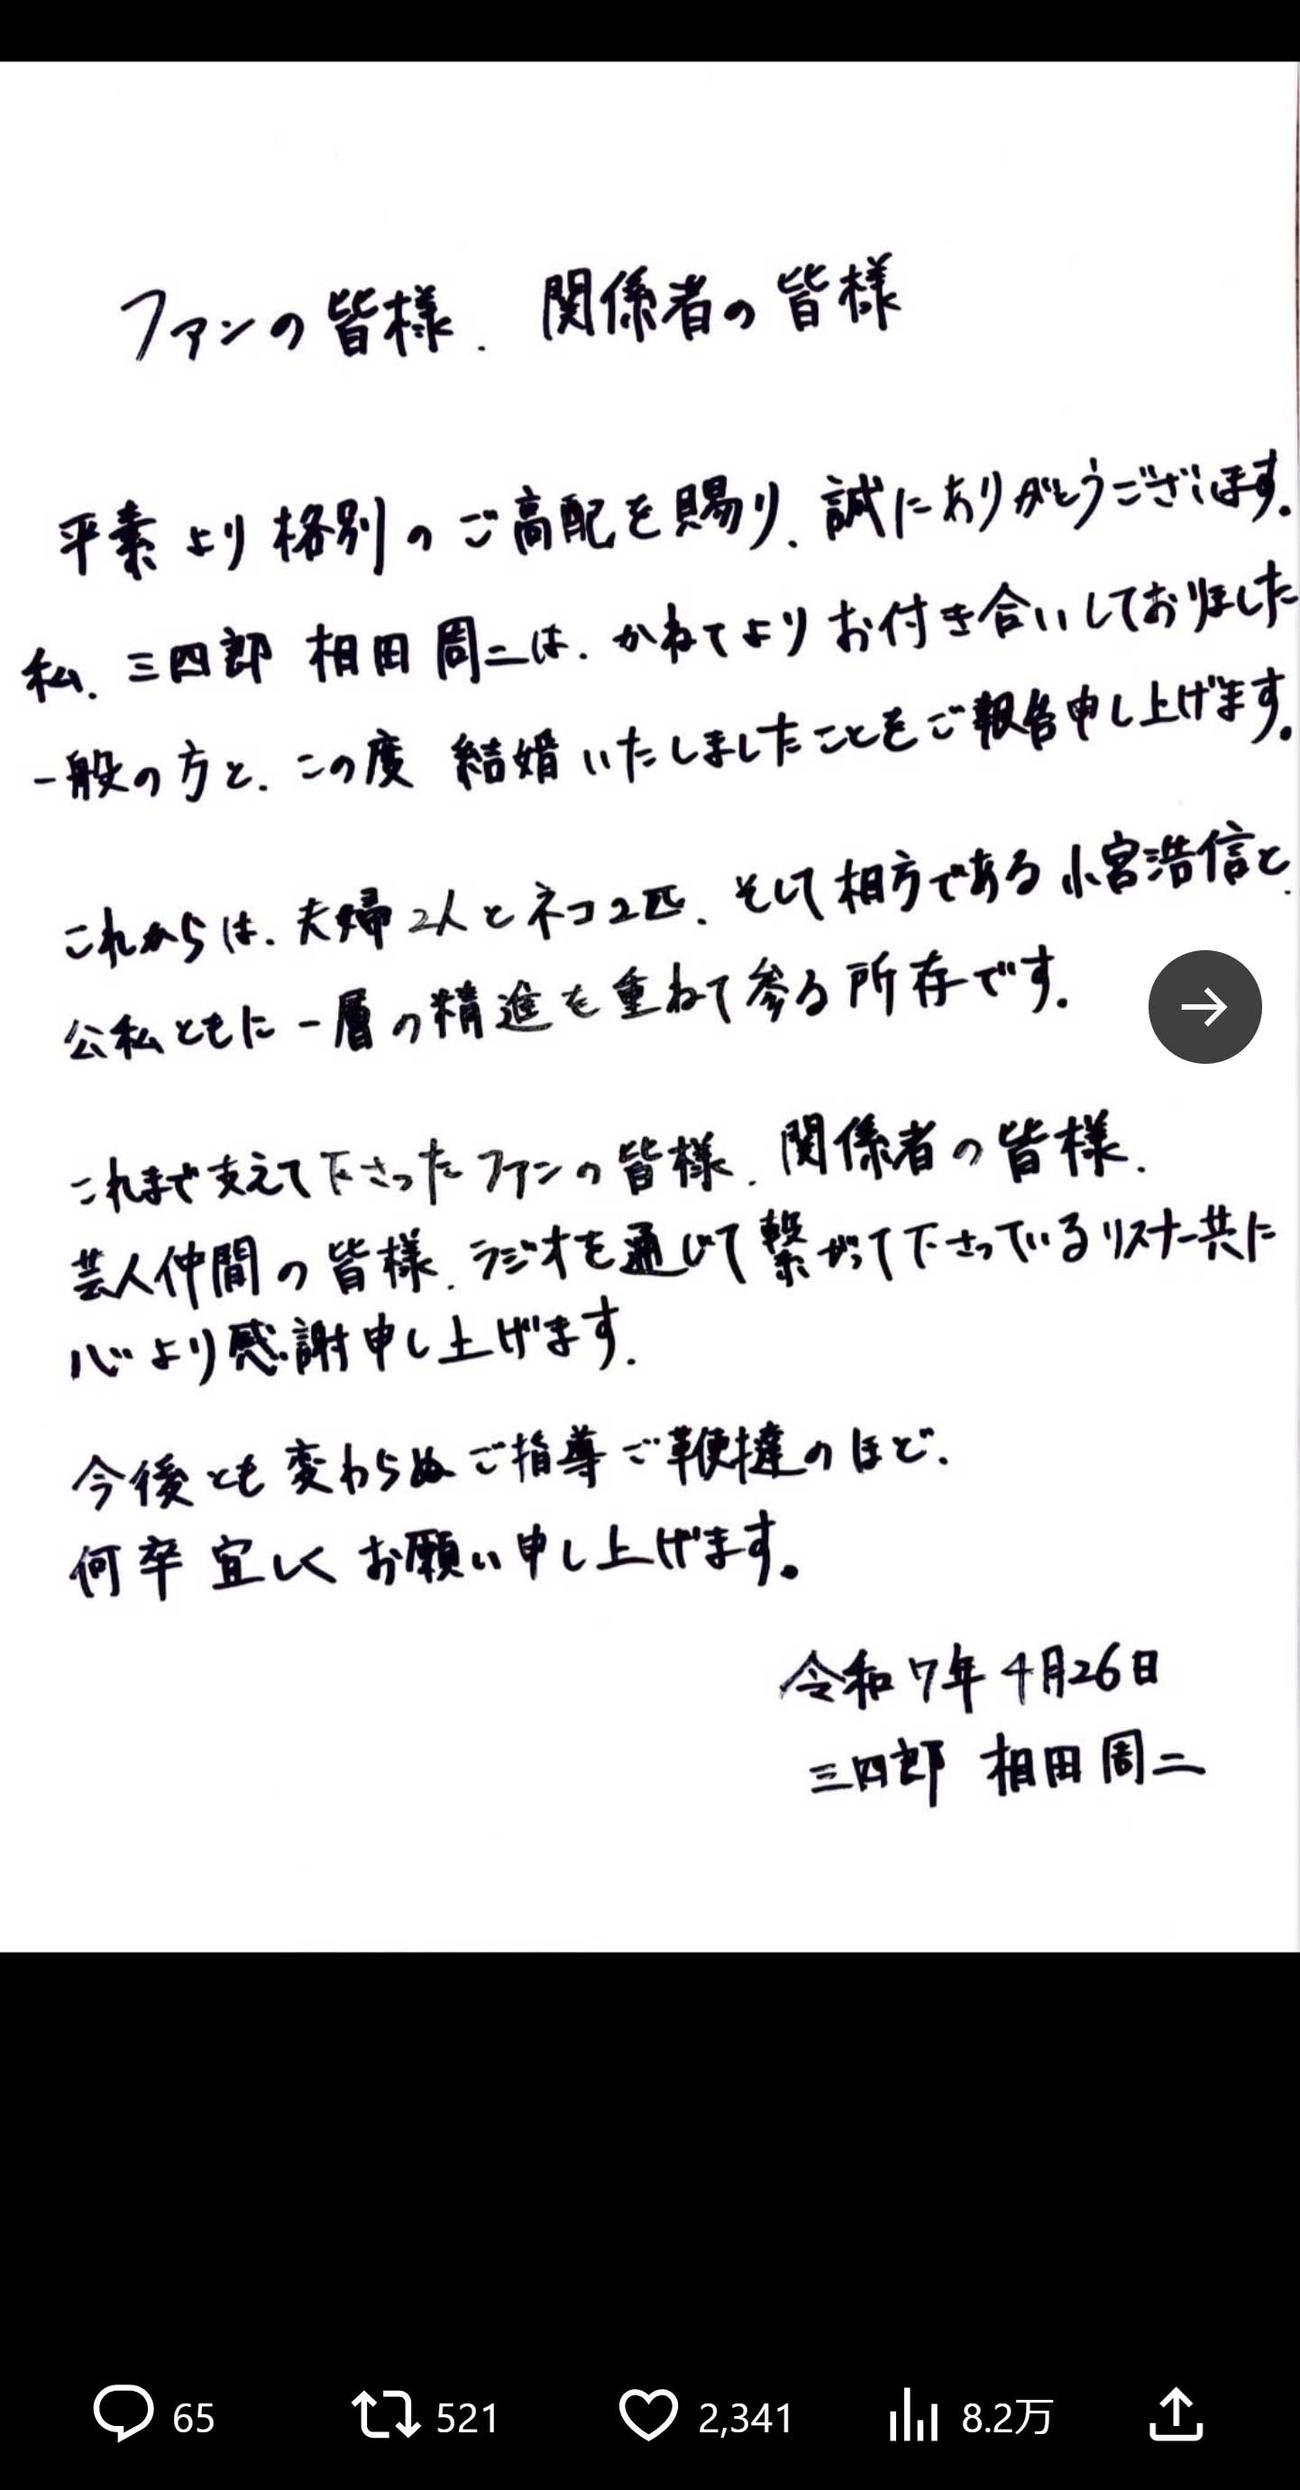 ファンの皆様、関係者の皆様
平素より格別のご高配を賜り、誠にありがとうございます。
私、三四郎 相田周二は、かねてよりお付き合いしておりました
一般の方と、この度 結婚いたしましたことをご報告申し上げます。
これからは、夫婦2人とネコ2匹、そして相方である小宮浩信と、
公私ともに一層の精進を重ねて参る所存です。
これまで支えて下さったファンの皆様、関係者の皆様、
芸人仲間の皆様、ラジオを通じて繋がって下さっているリスナー共に
心より感謝申し上げます。
今後とも変わらぬご指導ご鞭撻のほど、
何卒宜しくお願い申し上げます。
令和7年4月26日
三四郎 相田周二
65 521 2,341 8.2万